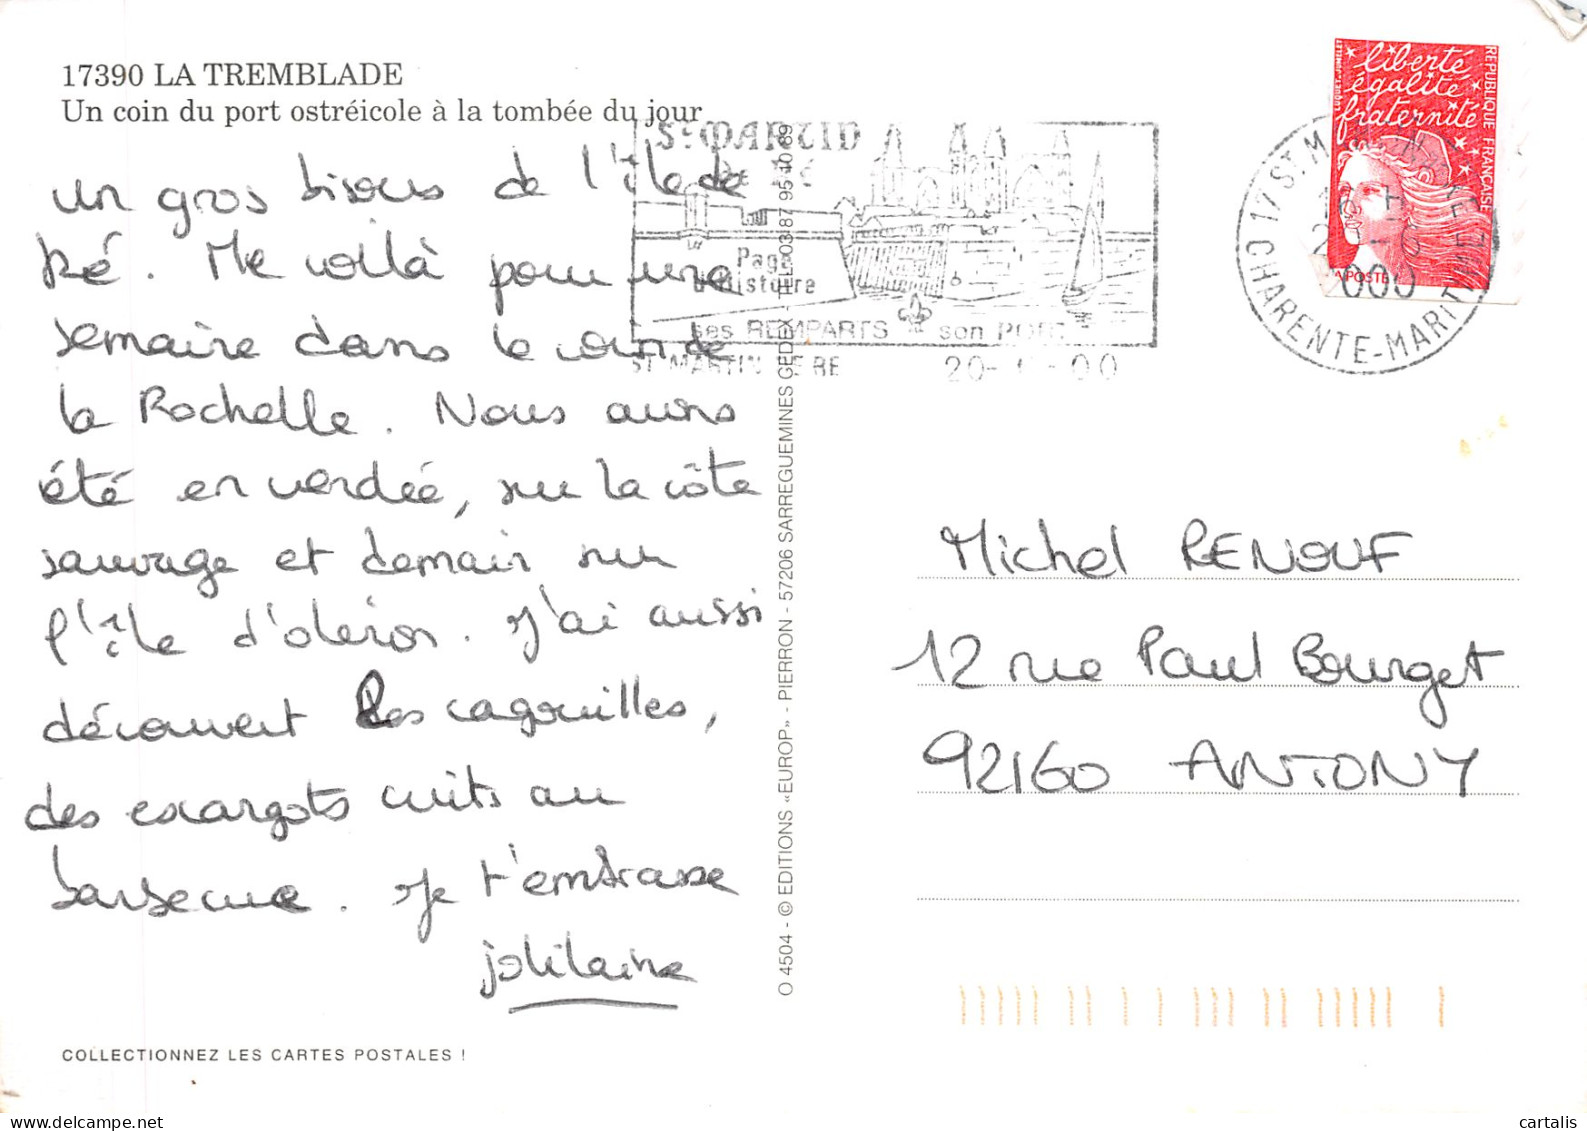 17390 LA TREMBLADE
Un coin du port ostréicole à la tombée du jour
un gros bisous de l'île de
Ré. Me voilà pour une
semaine dans le coin de
la Rochelle. Nous avons
été en vendée, sur la côte
sauvage et demain sur
l'île d'oléron. J'ai aussi
découvert les cagouilles,
des escargots cuits au
barbecue. Je t'embrasse
jolilaine
COLLECTIONNEZ LES CARTES POSTALES !
O 4504 - © EDITIONS «EUROP» - PIERRON - 57206 SARREGUEMINES CEDEX - TEL 03 87 95 40 89
St MARTIN
DE RÉ
Page
d'histoire
ses REMPARTS son PORT
ST MARTIN DE RE 20- -00
17 ST.M
CHARENTE-MARITIME
liberté
égalité
fraternité
REPUBLIQUE FRANÇAISE
LA POSTE
Michel RENOUF
12 rue Paul Bourget
92160 ANTONY
delcampe.net
cartalis